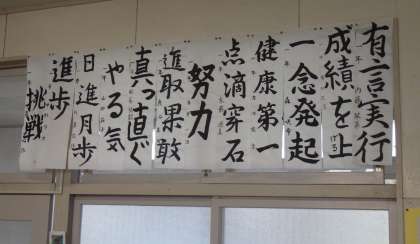 有言実行
成績を上げる
一念発起
健康第一
点滴穿石
努力
進取果敢
真っ直ぐ
やる気
日進月歩
進歩
挑戦